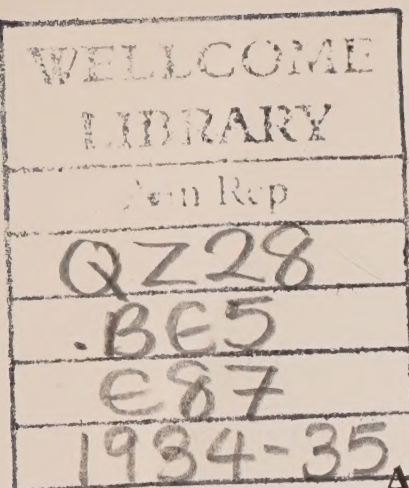 WELLCOME
LIBRARY
Ann Rep
QZ28
.BE5
E87
1984-85
A